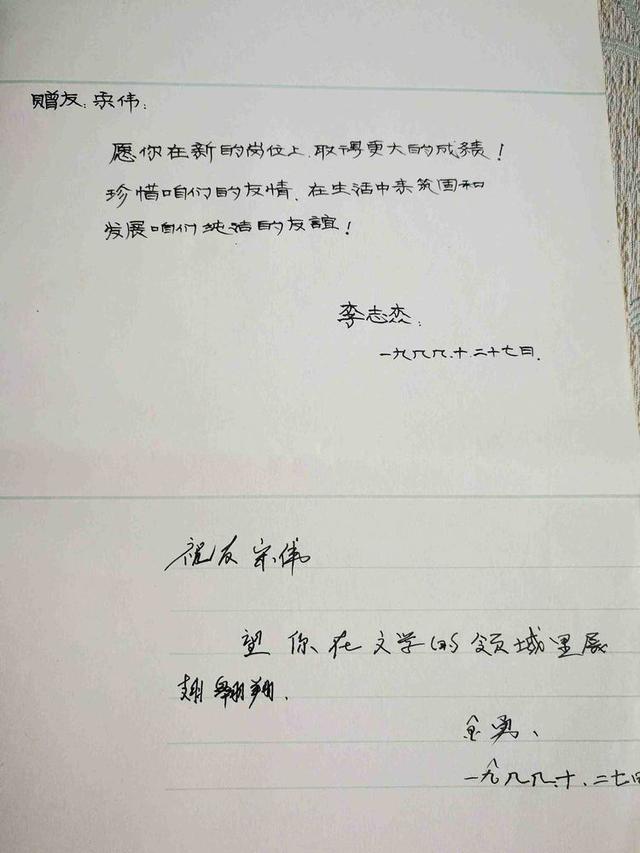 赠友:宗伟:
愿你在新的岗位上,取得更大的成绩!
珍惜咱们的友情,在生活中来巩固和
发展咱们纯洁的友谊!
李志杰:
一九八八.十.二十七日.
祝友宗伟
望你在文学的领域里展
翅翱翔.
金勇、
一九八八.十.二七日